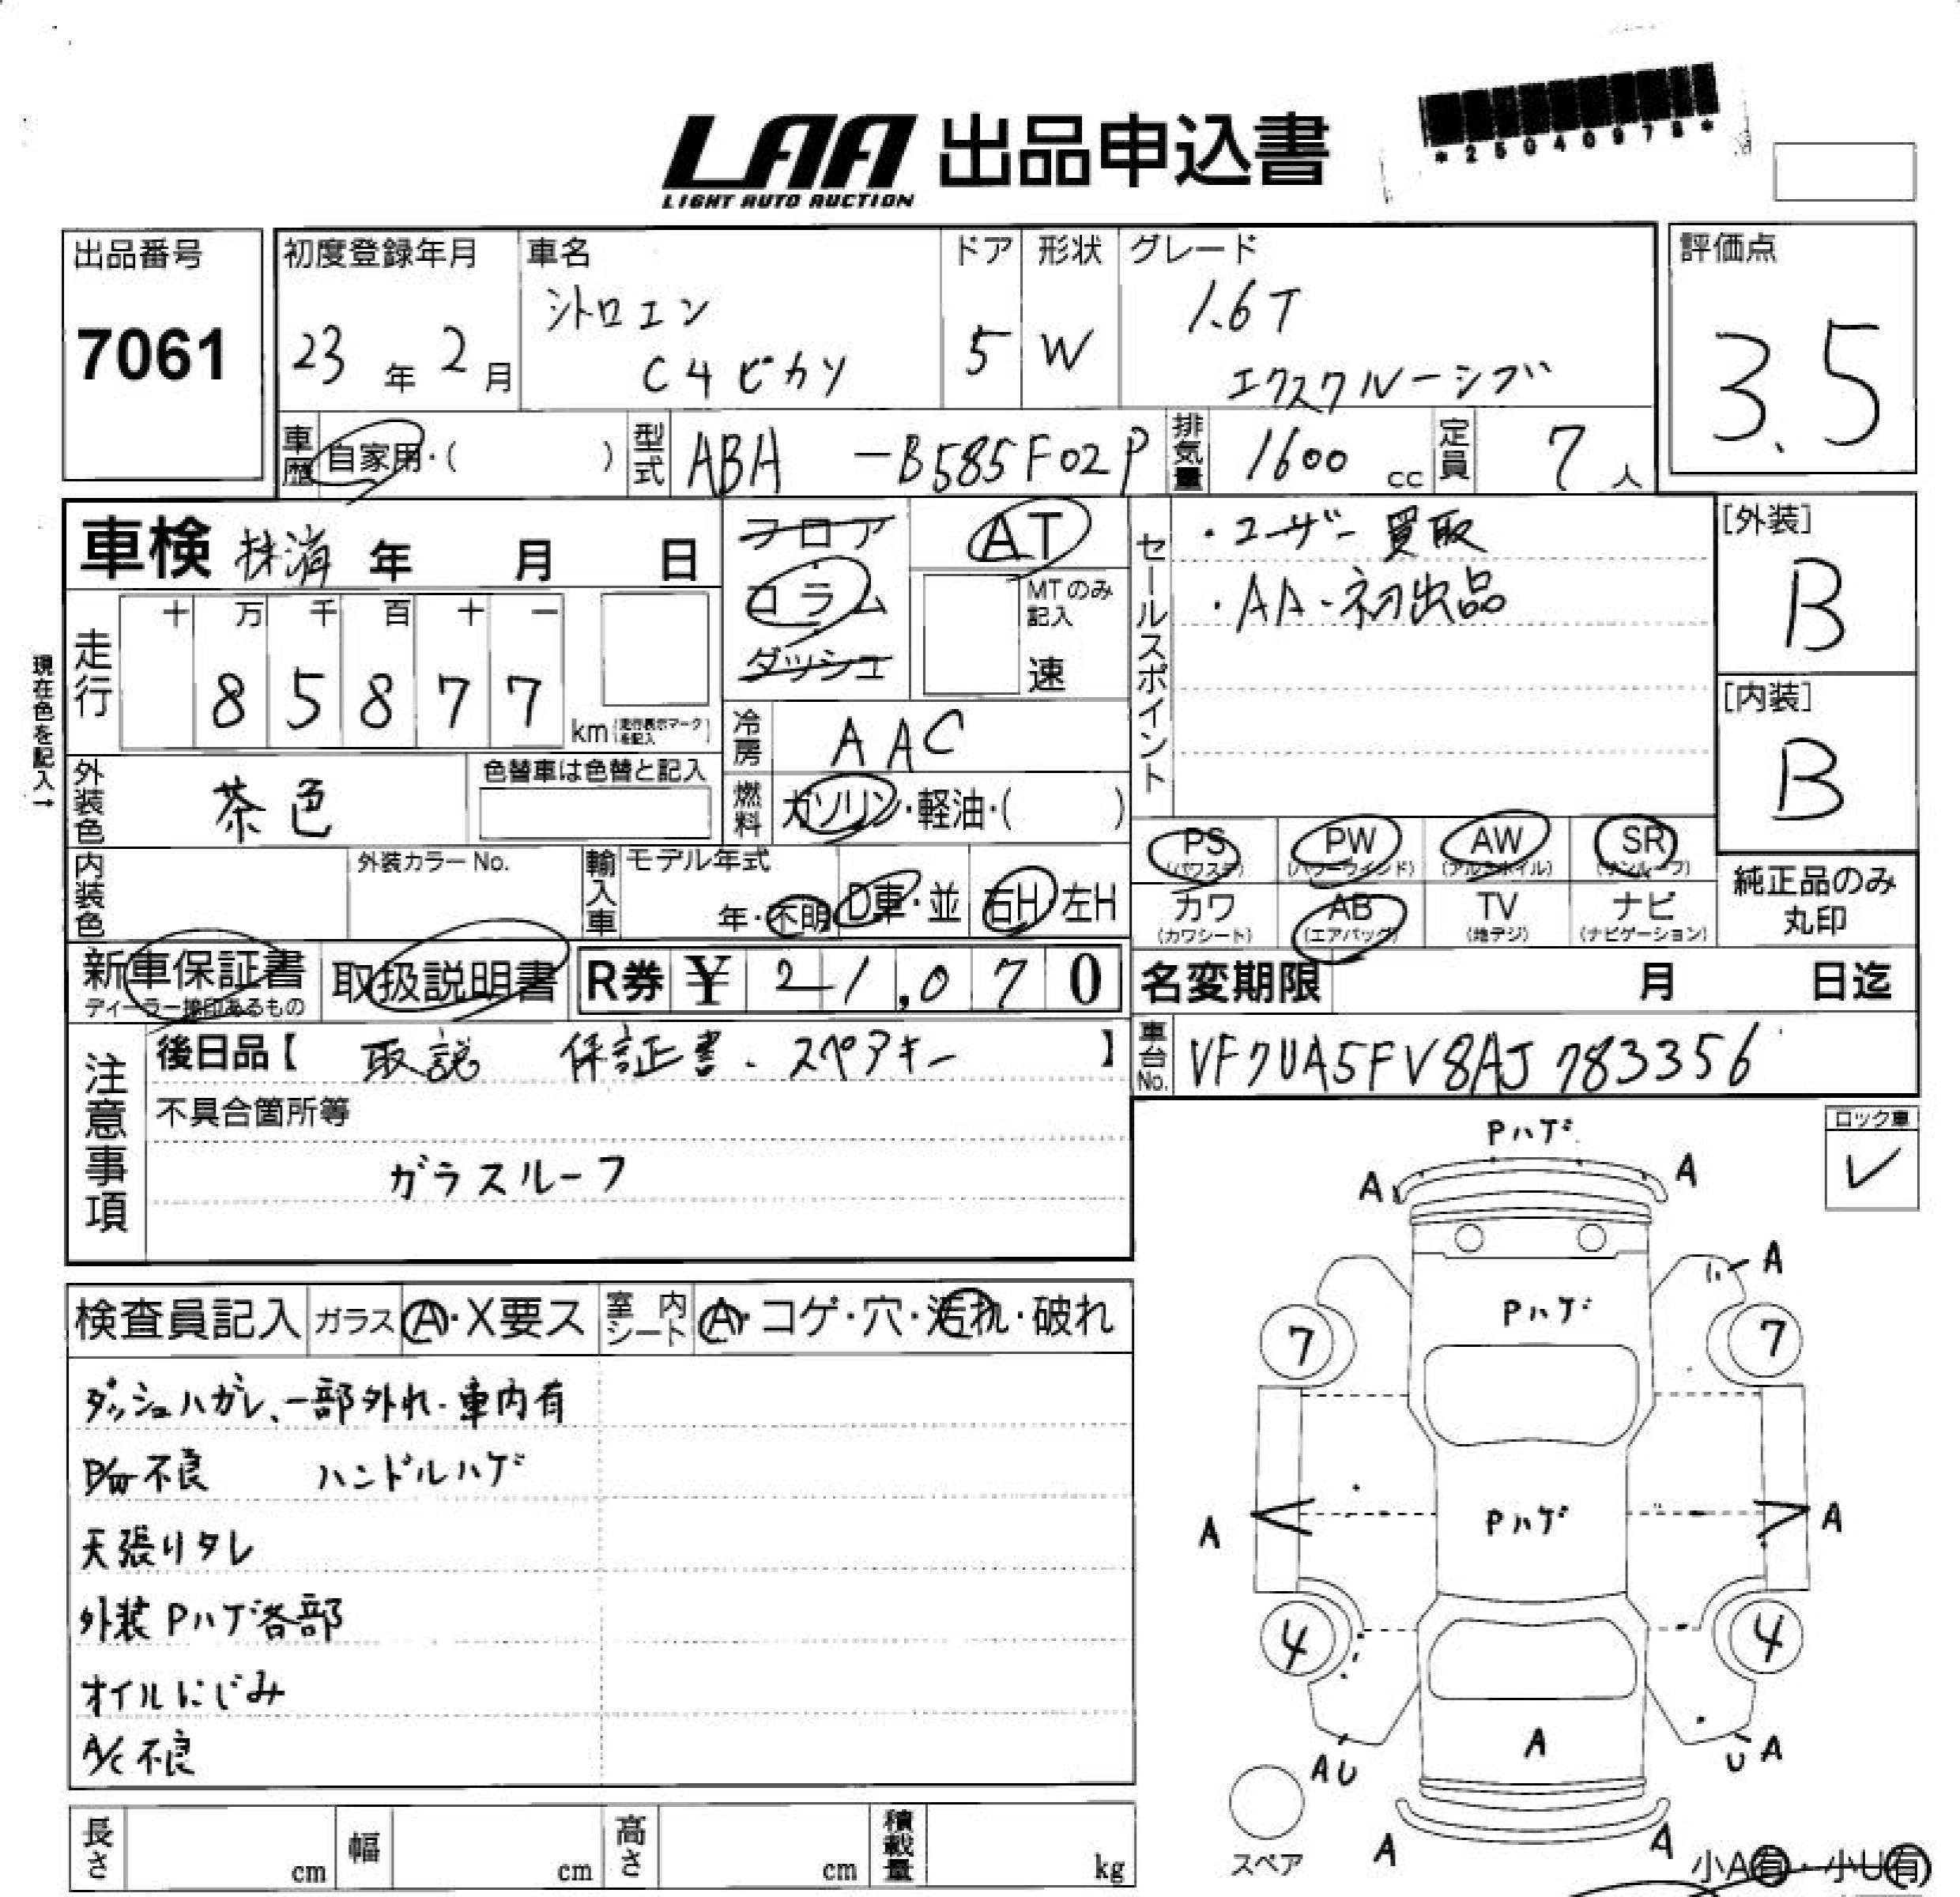 LAA 出品申込書
LIGHT AUTO AUCTION
*25040978*
出品番号
7061
初度登録年月
23年2月
車名
シトロエン
C4ピカソ
ドア
5
形状
W
グレード
1.6T
エクスクルーシブ
評価点
3.5
車歴
自家用・( )
型式
ABA -B585F02P
排気量
1600 cc
定員
7人
車検 抹消 年 月 日
フロア
コラム
ダッシュ
AT
MTのみ記入
速
セールスポイント
・ユーザー買取
・AA・初出品
[外装]
B
[内装]
B
現在色を記入→
走行
十 万 千 百 十 一
8 5 8 7 7 km
(走行表示マークを記入)
冷房
AAC
外装色
茶色
色替車は色替と記入
燃料
ガソリン・軽油・( )
PS (パワステ)
PW (パワーウインド)
AW (アルミホイル)
SR (サンルーフ)
カワ (カワシート)
AB (エアバッグ)
TV (地デジ)
ナビ (ナビゲーション)
純正品のみ
丸印
内装色
外装カラーNo.
輸入車
モデル年式
年・不明
D車・並
右H 左H
新車保証書
ディーラー捺印あるもの
取扱説明書
R券 ¥ 21,070
名変期限 月 日迄
注意事項
後日品【 取説 保証書・スペアキー 】
車台No.
VF7UA5FV8AJ783356
不具合箇所等
ガラスルーフ
ロック車
✓
検査員記入
ガラス A・X要ス
室内シート A・コゲ・穴・汚れ・破れ
ダッシュハガレ、一部外れ・車内有
P/W不良 ハンドルハゲ
天張りタレ
外装Pハゲ各部
オイルにじみ
A/C不良
Pハゲ
A A
A
Pハゲ
7 7
Pハゲ
A A
4 4
A
AU UA
A A
スペア
小A有・小U有
長さ cm
幅 cm
高さ cm
積載量 kg